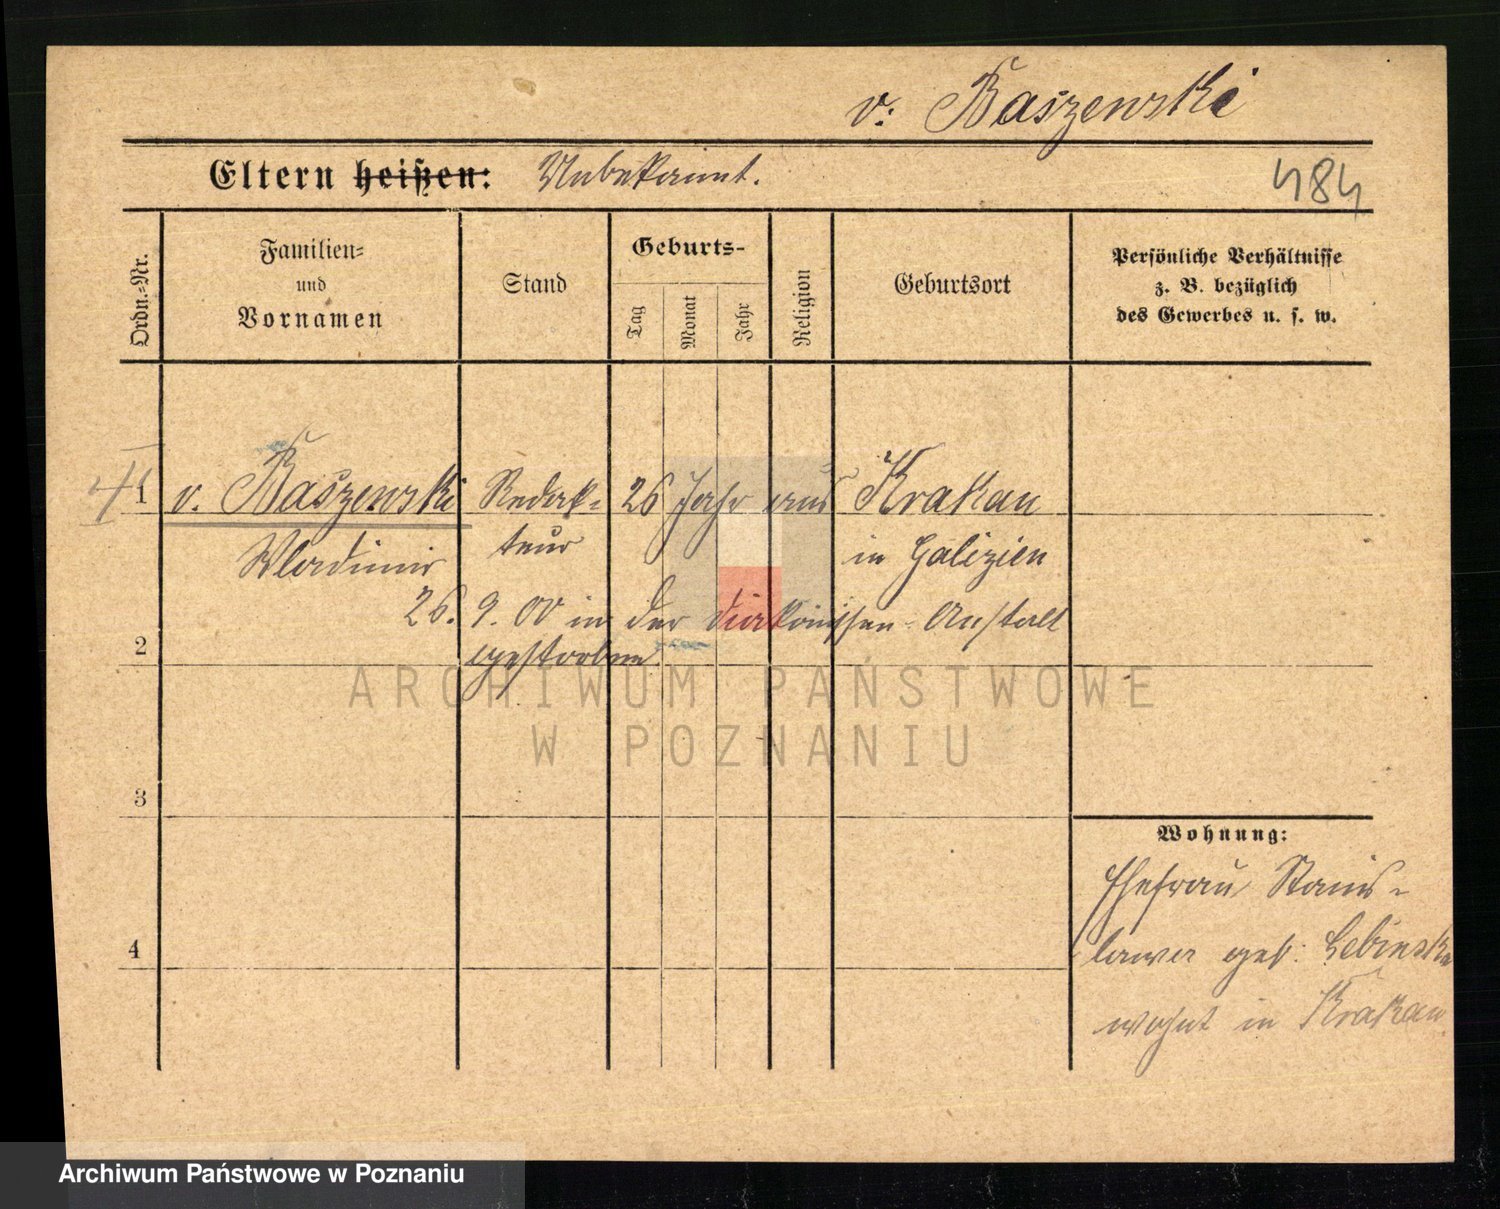 v. Baszewski
Eltern heißen: Unbekannt.
484
Ordn.-Nr.
Familien-
und
Vornamen
Stand
Geburts-
Tag
Monat
Jahr
Religion
Geburtsort
Persönliche Verhältnisse
z. B. bezüglich
des Gewerbes u. s. w.
1 v. Baszewski Redak- 26 Jahr aus Krakau
Wladimir teur in Galizien
26. 9. 00 in der Diakonissen-Anstalt
2 gestorben.
ARCHIWUM PAŃSTWOWE
W POZNANIU
3
Wohnung:
Ehefrau Stanis-
4 lawa geb. Lebinska
wohnt in Krakau
Archiwum Państwowe w Poznaniu